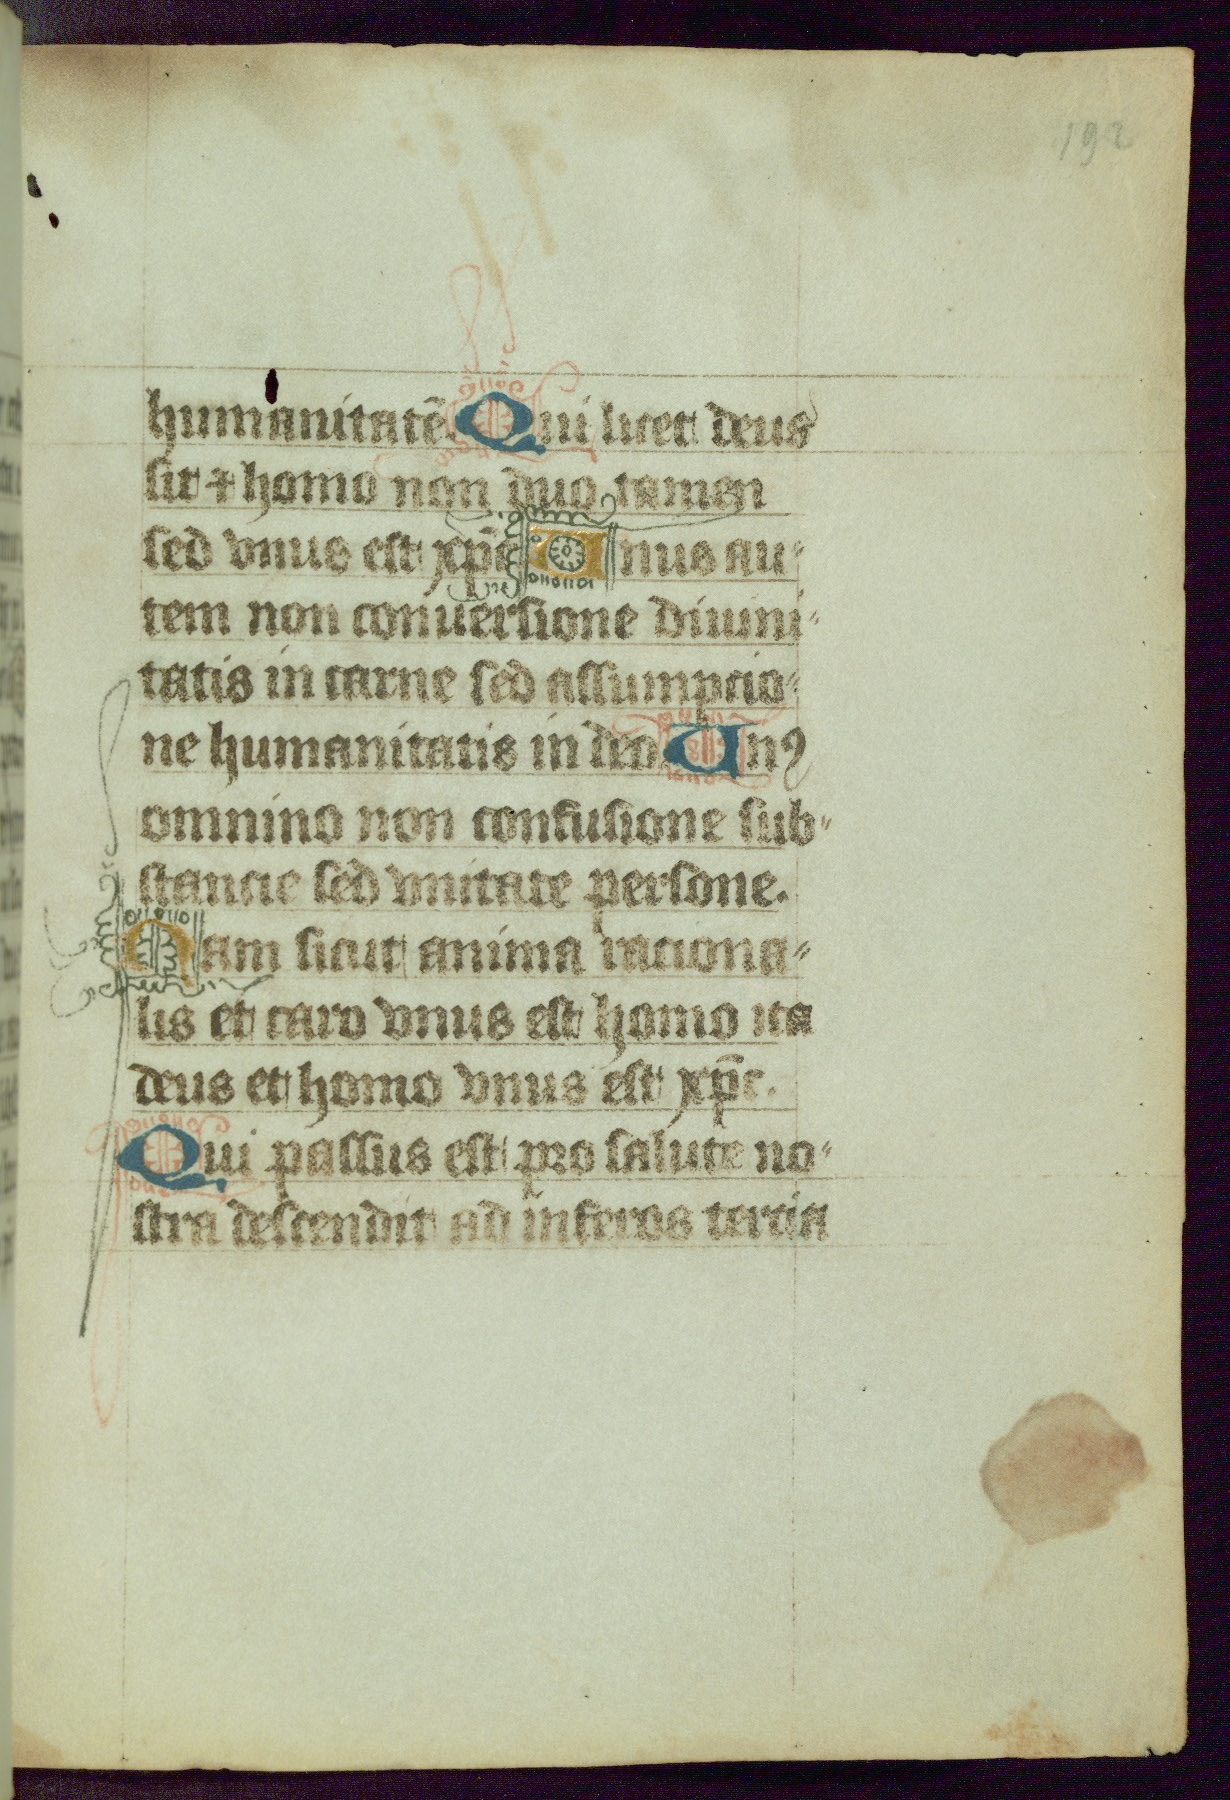 192
humanitatē Qui licet deus
sit ⁊ homo non duo tamen
sed vnus est xp̄c Unus au-
tem non conuersione diuini-
tatis in carne sed assumpcio-
ne humanitatis in deo Unꝰ
omnino non confusione sub-
stancie sed vnitate persone.
Nam sicut anima raciona-
lis et caro vnus est homo ita
deus et homo vnus est xp̄c.
Qui passus est pro salute no-
stra descendit ad inferos tercia